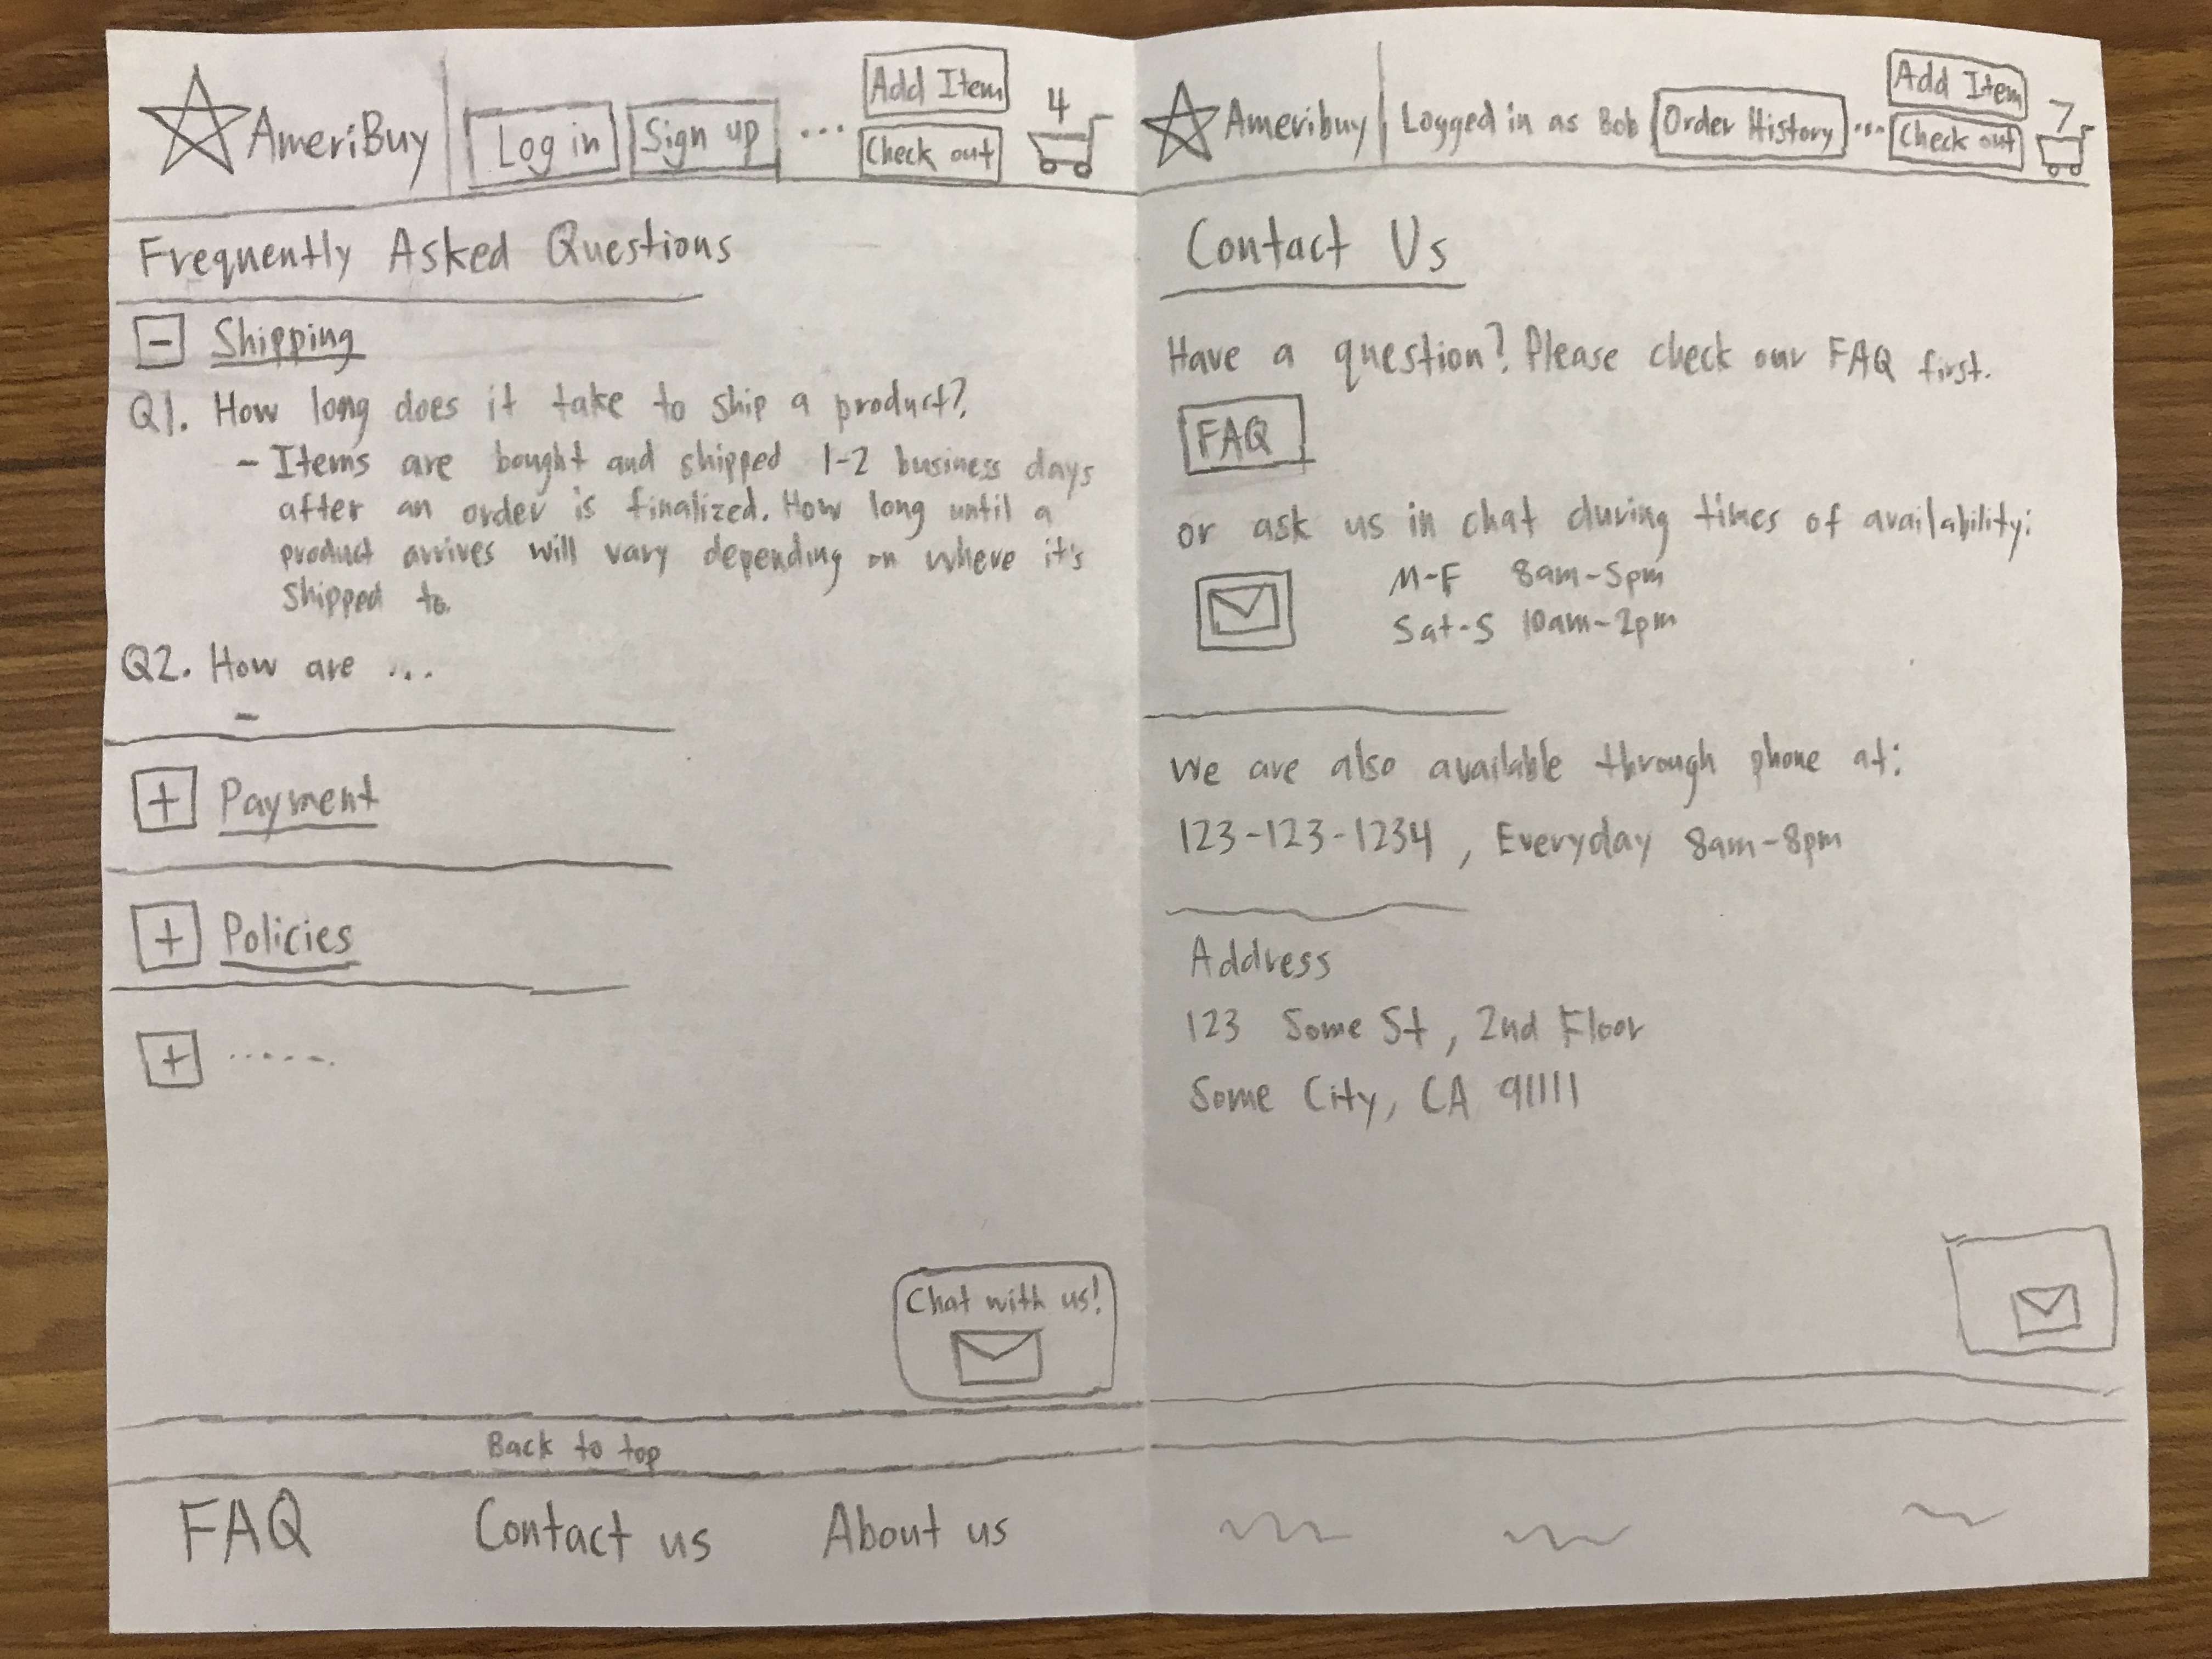 AmeriBuy
Log in
Sign up
...
Add Item
Check out
4
Frequently Asked Questions
- Shipping
Q1. How long does it take to ship a product?
- Items are bought and shipped 1-2 business days
after an order is finalized. How long until a
product arrives will vary depending on where it's
shipped to.
Q2. How are ...
-
+ Payment
+ Policies
+ .....
Chat with us!
Back to top
FAQ Contact us About us
Ameribuy
Logged in as Bob
Order History
...
Add Item
Check out
7
Contact Us
Have a question? Please check our FAQ first.
FAQ
or ask us in chat during times of availability:
M-F 8am-5pm
Sat-S 10am-2pm
We are also available through phone at:
123-123-1234, Everyday 8am-8pm
Address
123 Some St, 2nd Floor
Some City, CA 91111